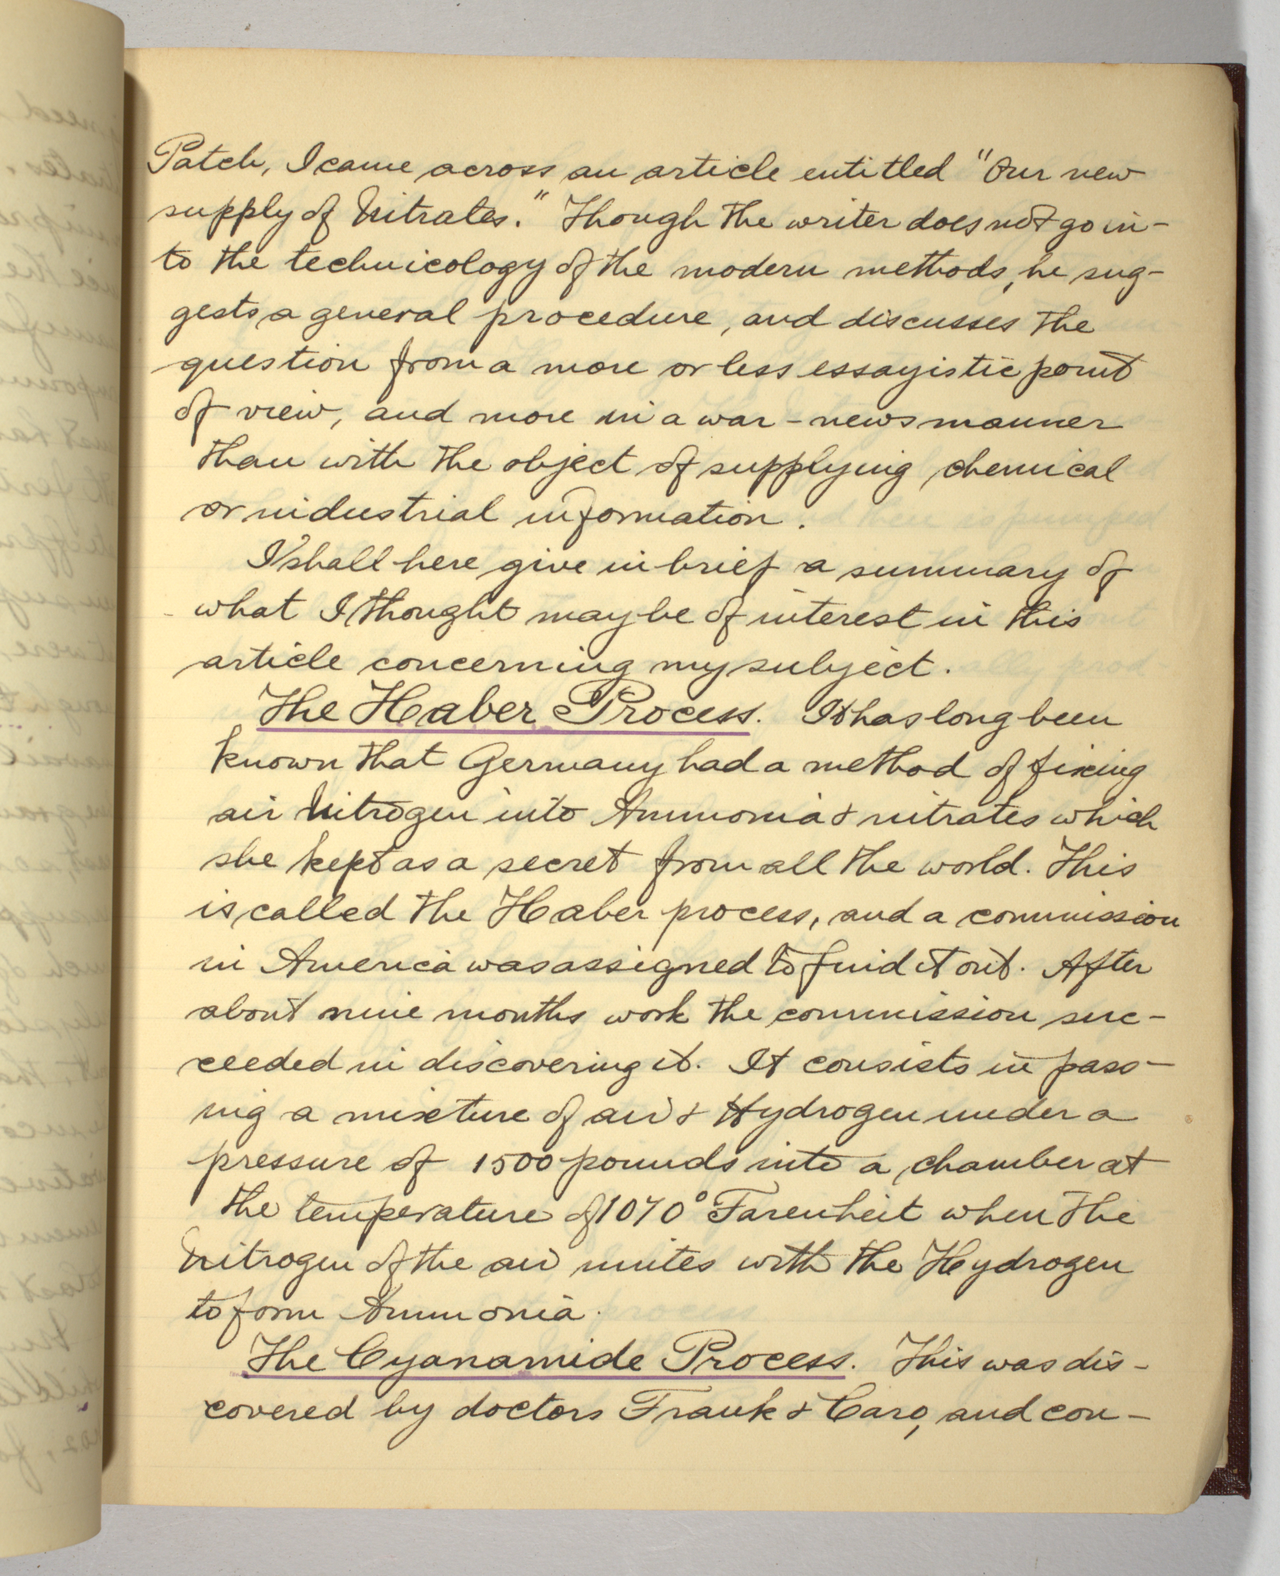 Patch, I came across an article entitled "Our new
supply of Nitrates." Though the writer does not go in-
to the technicology of the modern methods, he sug-
gests a general procedure, and discusses the
question from a more or less essayistic point
of view, and more in a war-news manner
than with the object of supplying chemical
or industrial information.
I shall here give in brief a summary of
what I thought may be of interest in this
article concerning my subject.
The Haber Process. It has long been
known that Germany had a method of fixing
air Nitrogen into Ammonia & nitrates which
she kept as a secret from all the world. This
is called the Haber process, and a commission
in America was assigned to find it out. After
about nine months work the commission suc-
ceeded in discovering it. It consists in pass-
ing a mixture of air & Hydrogen under a
pressure of 1500 pounds into a chamber at
the temperature of 1070° Farenheit when the
Nitrogen of the air unites with the Hydrogen
to form Ammonia.
The Cyanamide Process. This was dis-
covered by doctors Frank & Caro, and con-